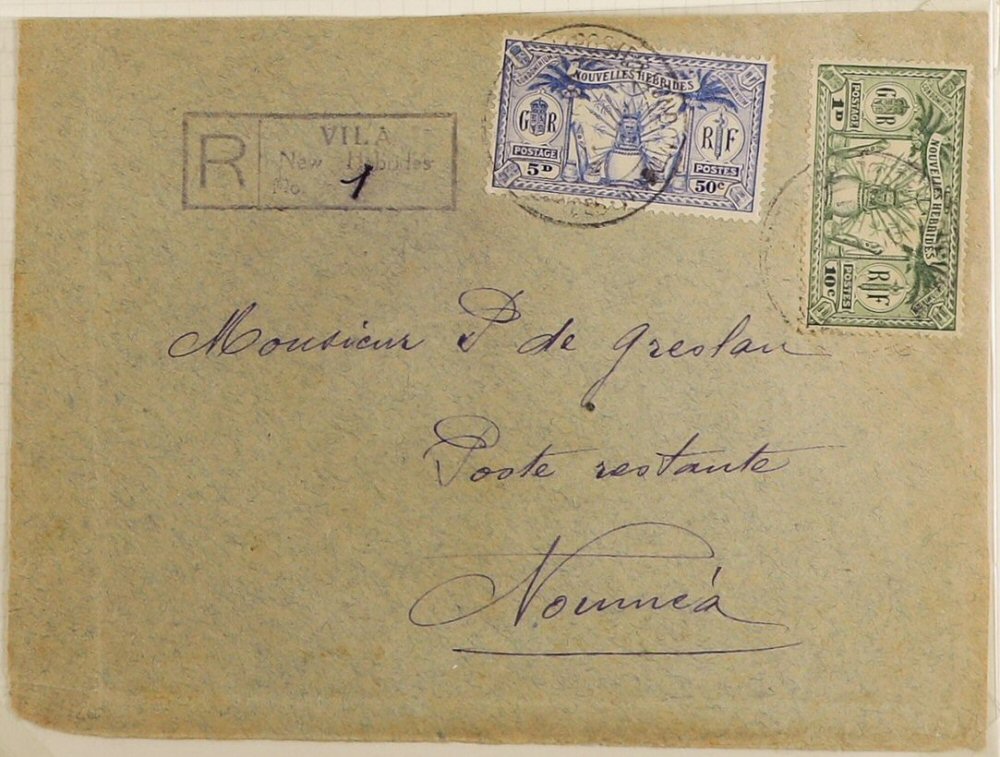 R
VILA
New Hebrides
No. 1
NOUVELLES HEBRIDES
G R
R F
POSTAGE
POSTES
5D
50c
NOUVELLES HEBRIDES
G R
R F
POSTAGE
POSTES
1D
10c
Monsieur P de Greslan
Poste restante
Nouméa